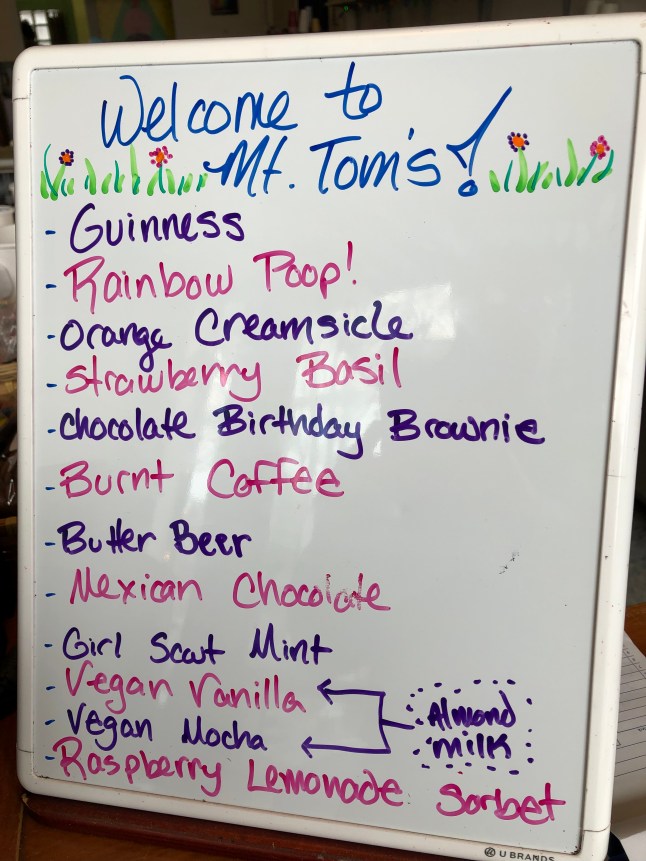 Welcome to
Mt. Tom's!
- Guinness
- Rainbow Poop!
- Orange Creamsicle
- Strawberry Basil
- Chocolate Birthday Brownie
- Burnt Coffee
- Butter Beer
- Mexican Chocolate
- Girl Scout Mint
- Vegan Vanilla
- Vegan Mocha
Almond
milk
- Raspberry Lemonade Sorbet
U BRANDS